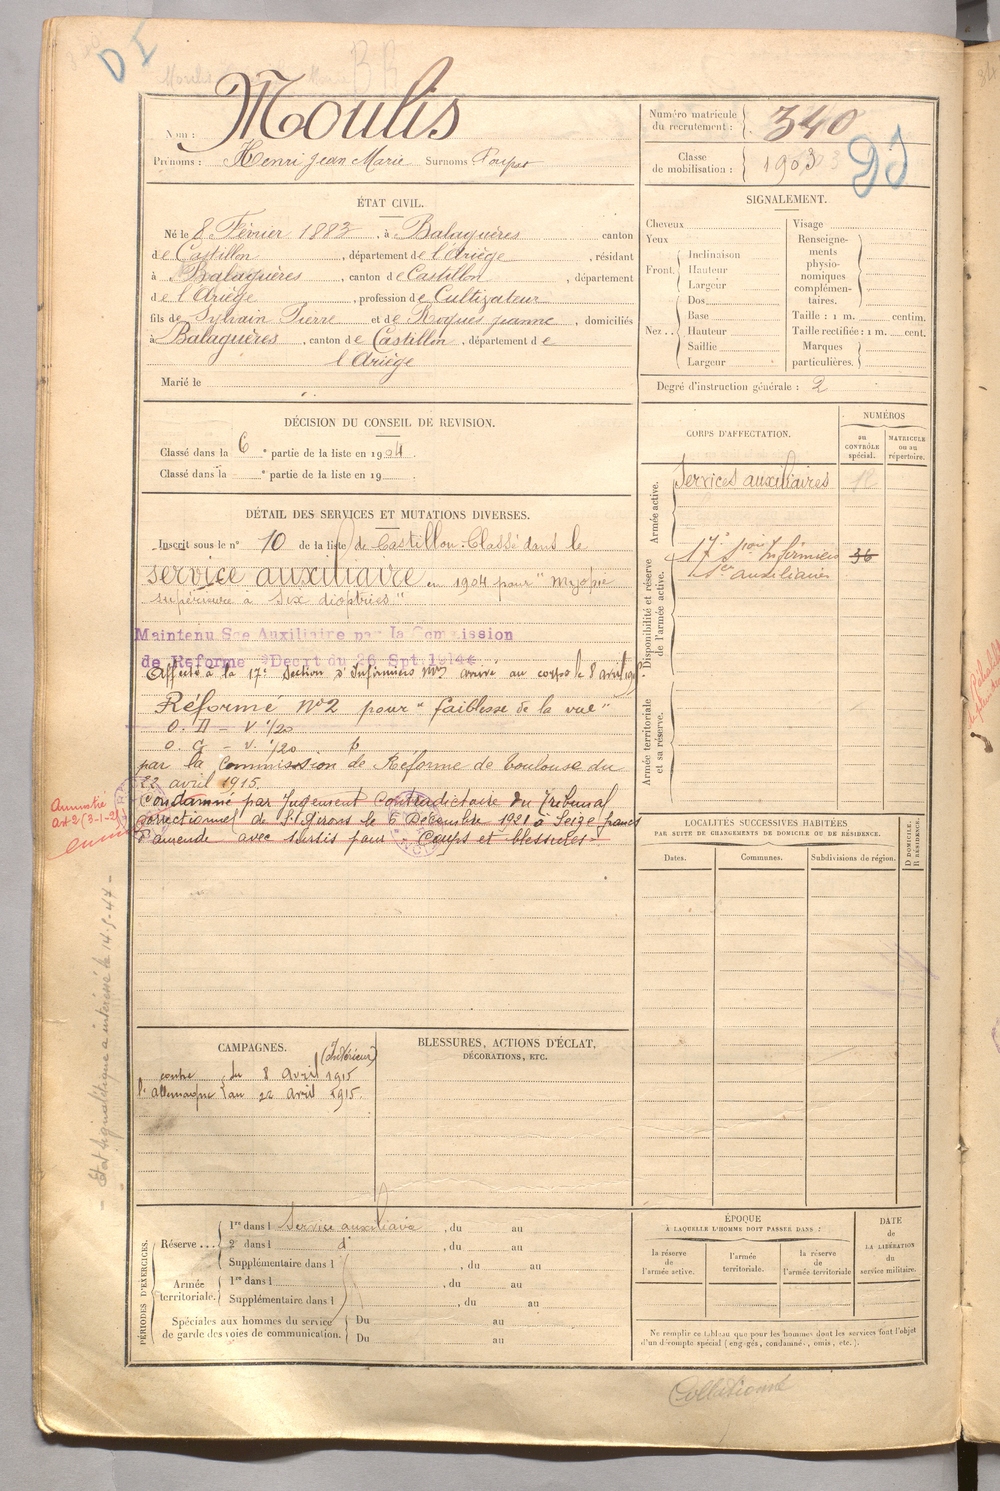 DI
Nom : Moulis
Prénoms : Henri Jean Marie Surnoms Poupat
Numéro matricule du recrutement : 340
Classe de mobilisation : 1903
ÉTAT CIVIL.
Né le 8 Février 1883, à Balaguères canton
de Castillon, département de l'Ariège, résidant
à Balaguères, canton de Castillon, département
de l'Ariège, profession de Cultivateur
fils de Sylvain Pierre et de Roques Jeanne, domiciliés
à Balaguères, canton de Castillon, département de
l'Ariège
Marié le
SIGNALEMENT.
Cheveux
Yeux
Front. Inclinaison
Hauteur
Largeur
Nez.. Dos
Base
Hauteur
Saillie
Largeur
Visage
Renseigne-
ments
physio-
nomiques
complémen-
taires.
Taille : 1 m. centim.
Taille rectifiée : 1 m. cent.
Marques
particulières.
Degré d'instruction générale : 2
DÉCISION DU CONSEIL DE REVISION.
Classé dans la 6e partie de la liste en 1904.
Classé dans la e partie de la liste en 19
DÉTAIL DES SERVICES ET MUTATIONS DIVERSES.
Inscrit sous le n° 10 de la liste de Castillon. Classé dans le
service auxiliaire en 1904 pour "Myopie
supérieure à six dioptries"
Maintenu Sce Auxiliaire par la Commission
de Réforme Décrt du 26 Spt 1914
Affecté à la 17e Section d'Infirmiers Mres arrivé au corps le 8 avril 1915.
Réformé N°2 pour "faiblesse de la vue"
O. D - V 1/20
O. G - V. 1/20
par la Commission de Réforme de Toulouse du
22 avril 1915.
Condamné par Jugement Contradictoire du Tribunal
correctionnel de St Girons le 6 Décembre 1921 à Seize francs
d'amende avec sursis pour Coups et blessures
Amnistié
Art 2 (3-1-25)
Etat signalétique à intéressé le 14-5-47
CORPS D'AFFECTATION.
NUMÉROS
au CONTRÔLE spécial.
MATRICULE ou au répertoire.
Armée active.
Services auxiliaires
Disponibilité et réserve de l'armée active.
17e Son Infirmiers 36
Sce auxiliaire
Armée territoriale et sa réserve.
LOCALITÉS SUCCESSIVES HABITÉES
PAR SUITE DE CHANGEMENTS DE DOMICILE OU DE RÉSIDENCE.
Dates.
Communes.
Subdivisions de région.
D DOMICILE.
R RÉSIDENCE.
CAMPAGNES.
(Intérieur)
contre l'Allemagne du 8 Avril 1915
au 22 Avril 1915.
BLESSURES, ACTIONS D'ÉCLAT,
DÉCORATIONS, ETC.
PÉRIODES D'EXERCICES.
Réserve... 1re dans l Service auxiliaire, du au
2e dans l d°, du au
Supplémentaire dans l, du au
Armée territoriale. 1re dans l, du au
Supplémentaire dans l, du au
Spéciales aux hommes du service
de garde des voies de communication.
Du au
Du au
ÉPOQUE
À LAQUELLE L'HOMME DOIT PASSER DANS :
la réserve de l'armée active.
l'armée territoriale.
la réserve de l'armée territoriale
DATE
de
LA LIBÉRATION
du
service militaire.
Ne remplir ce tableau que pour les hommes dont les services font l'objet
d'un décompte spécial (engagés, condamnés, omis, etc.).
Collationné